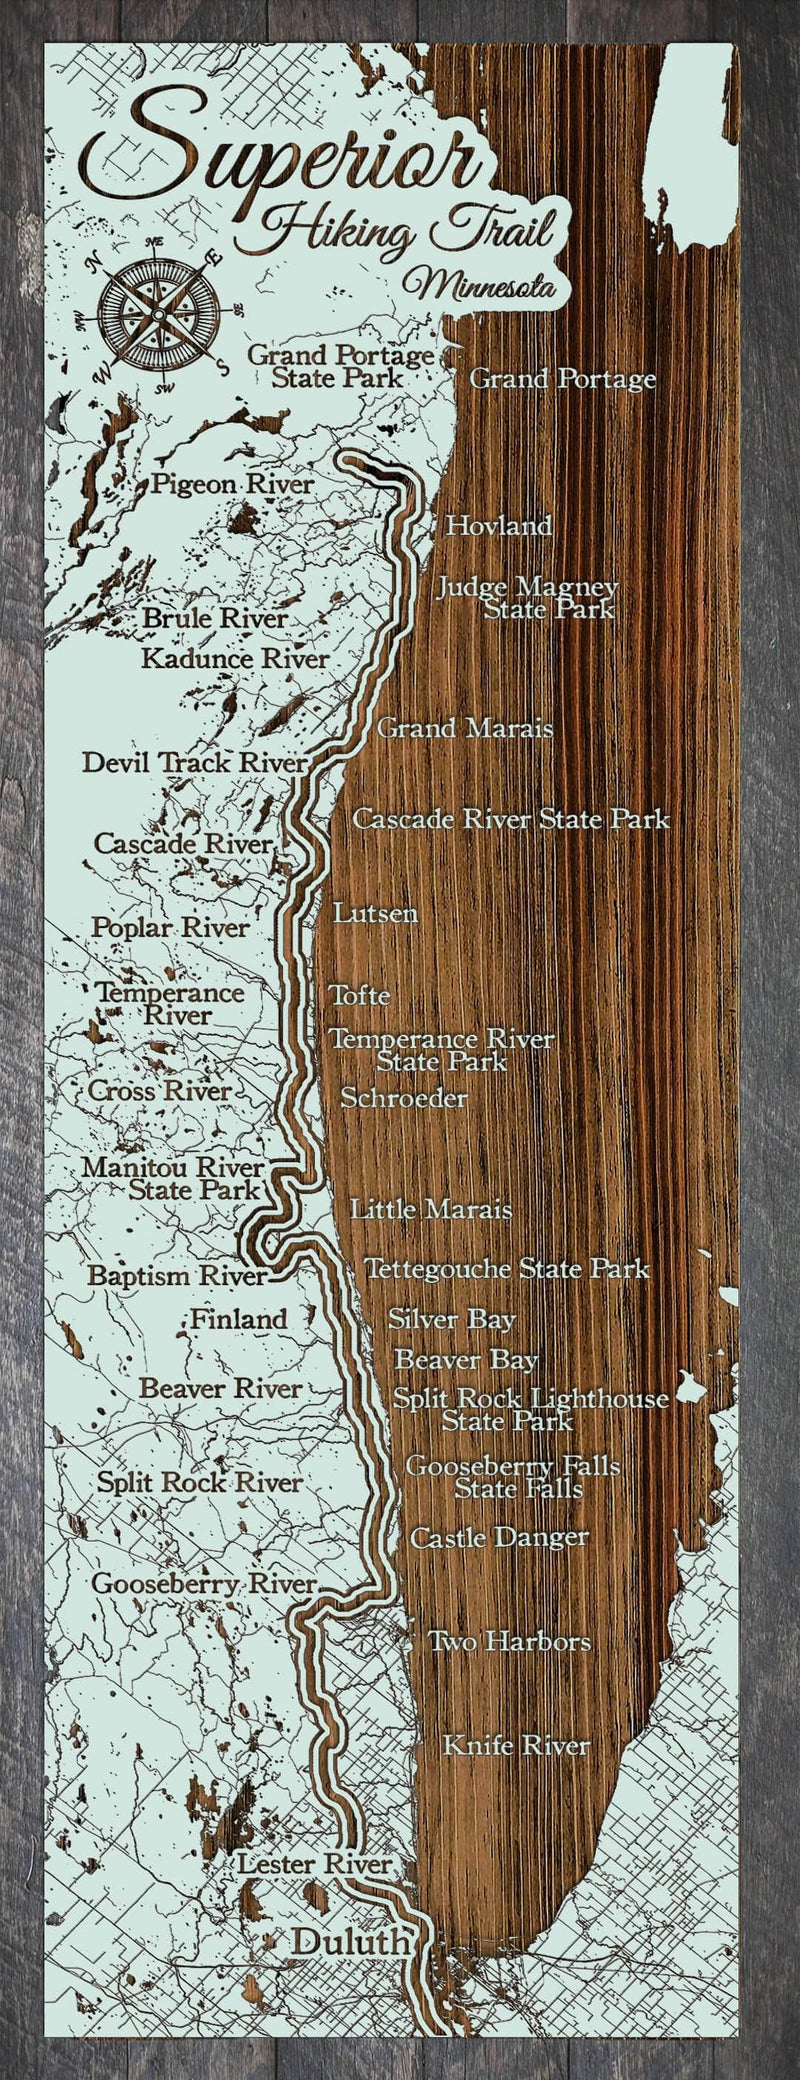 Superior
Hiking Trail
Minnesota
N
NE
E
SE
S
SW
W
NW
Grand Portage
State Park
Grand Portage
Pigeon River
Hovland
Judge Magney
State Park
Brule River
Kadunce River
Grand Marais
Devil Track River
Cascade River State Park
Cascade River
Lutsen
Poplar River
Temperance
River
Tofte
Temperance River
State Park
Cross River
Schroeder
Manitou River
State Park
Little Marais
Baptism River
Tettegouche State Park
Finland
Silver Bay
Beaver Bay
Beaver River
Split Rock Lighthouse
State Park
Gooseberry Falls
State Falls
Split Rock River
Castle Danger
Gooseberry River
Two Harbors
Knife River
Lester River
Duluth